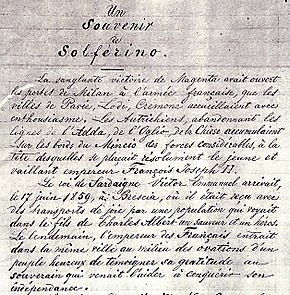 Un
Souvenir
de
Solférino.
La sanglante victoire de Magenta avait ouvert
les portes de Milan à l'armée française, que les
villes de Pavie, Lodi, Cremone accueillaient avec
enthousiasme. Les Autrichiens, abandonnant les
lignes de l'Adda, de l'Oglio, de la Chiese accumulaient
sur les bords du Mincio des forces considérables, à la
tête desquelles se plaçait résolument le jeune et
vaillant empereur François Joseph
Le roi de Sardaigne Victor Emmanuel arrivait,
le 17 juin 1859, à Brescia, où il était reçu avec
des transports de joie par une population qui voyait
dans le fils de Charles Albert un sauveur et un héros.
Le lendemain, l'empereur des Français entrait
dans la même ville au milieu des ovations d'un
peuple heureux de témoigner sa gratitude au
souverain qui venait l'aider à conquérir son
indépendance.